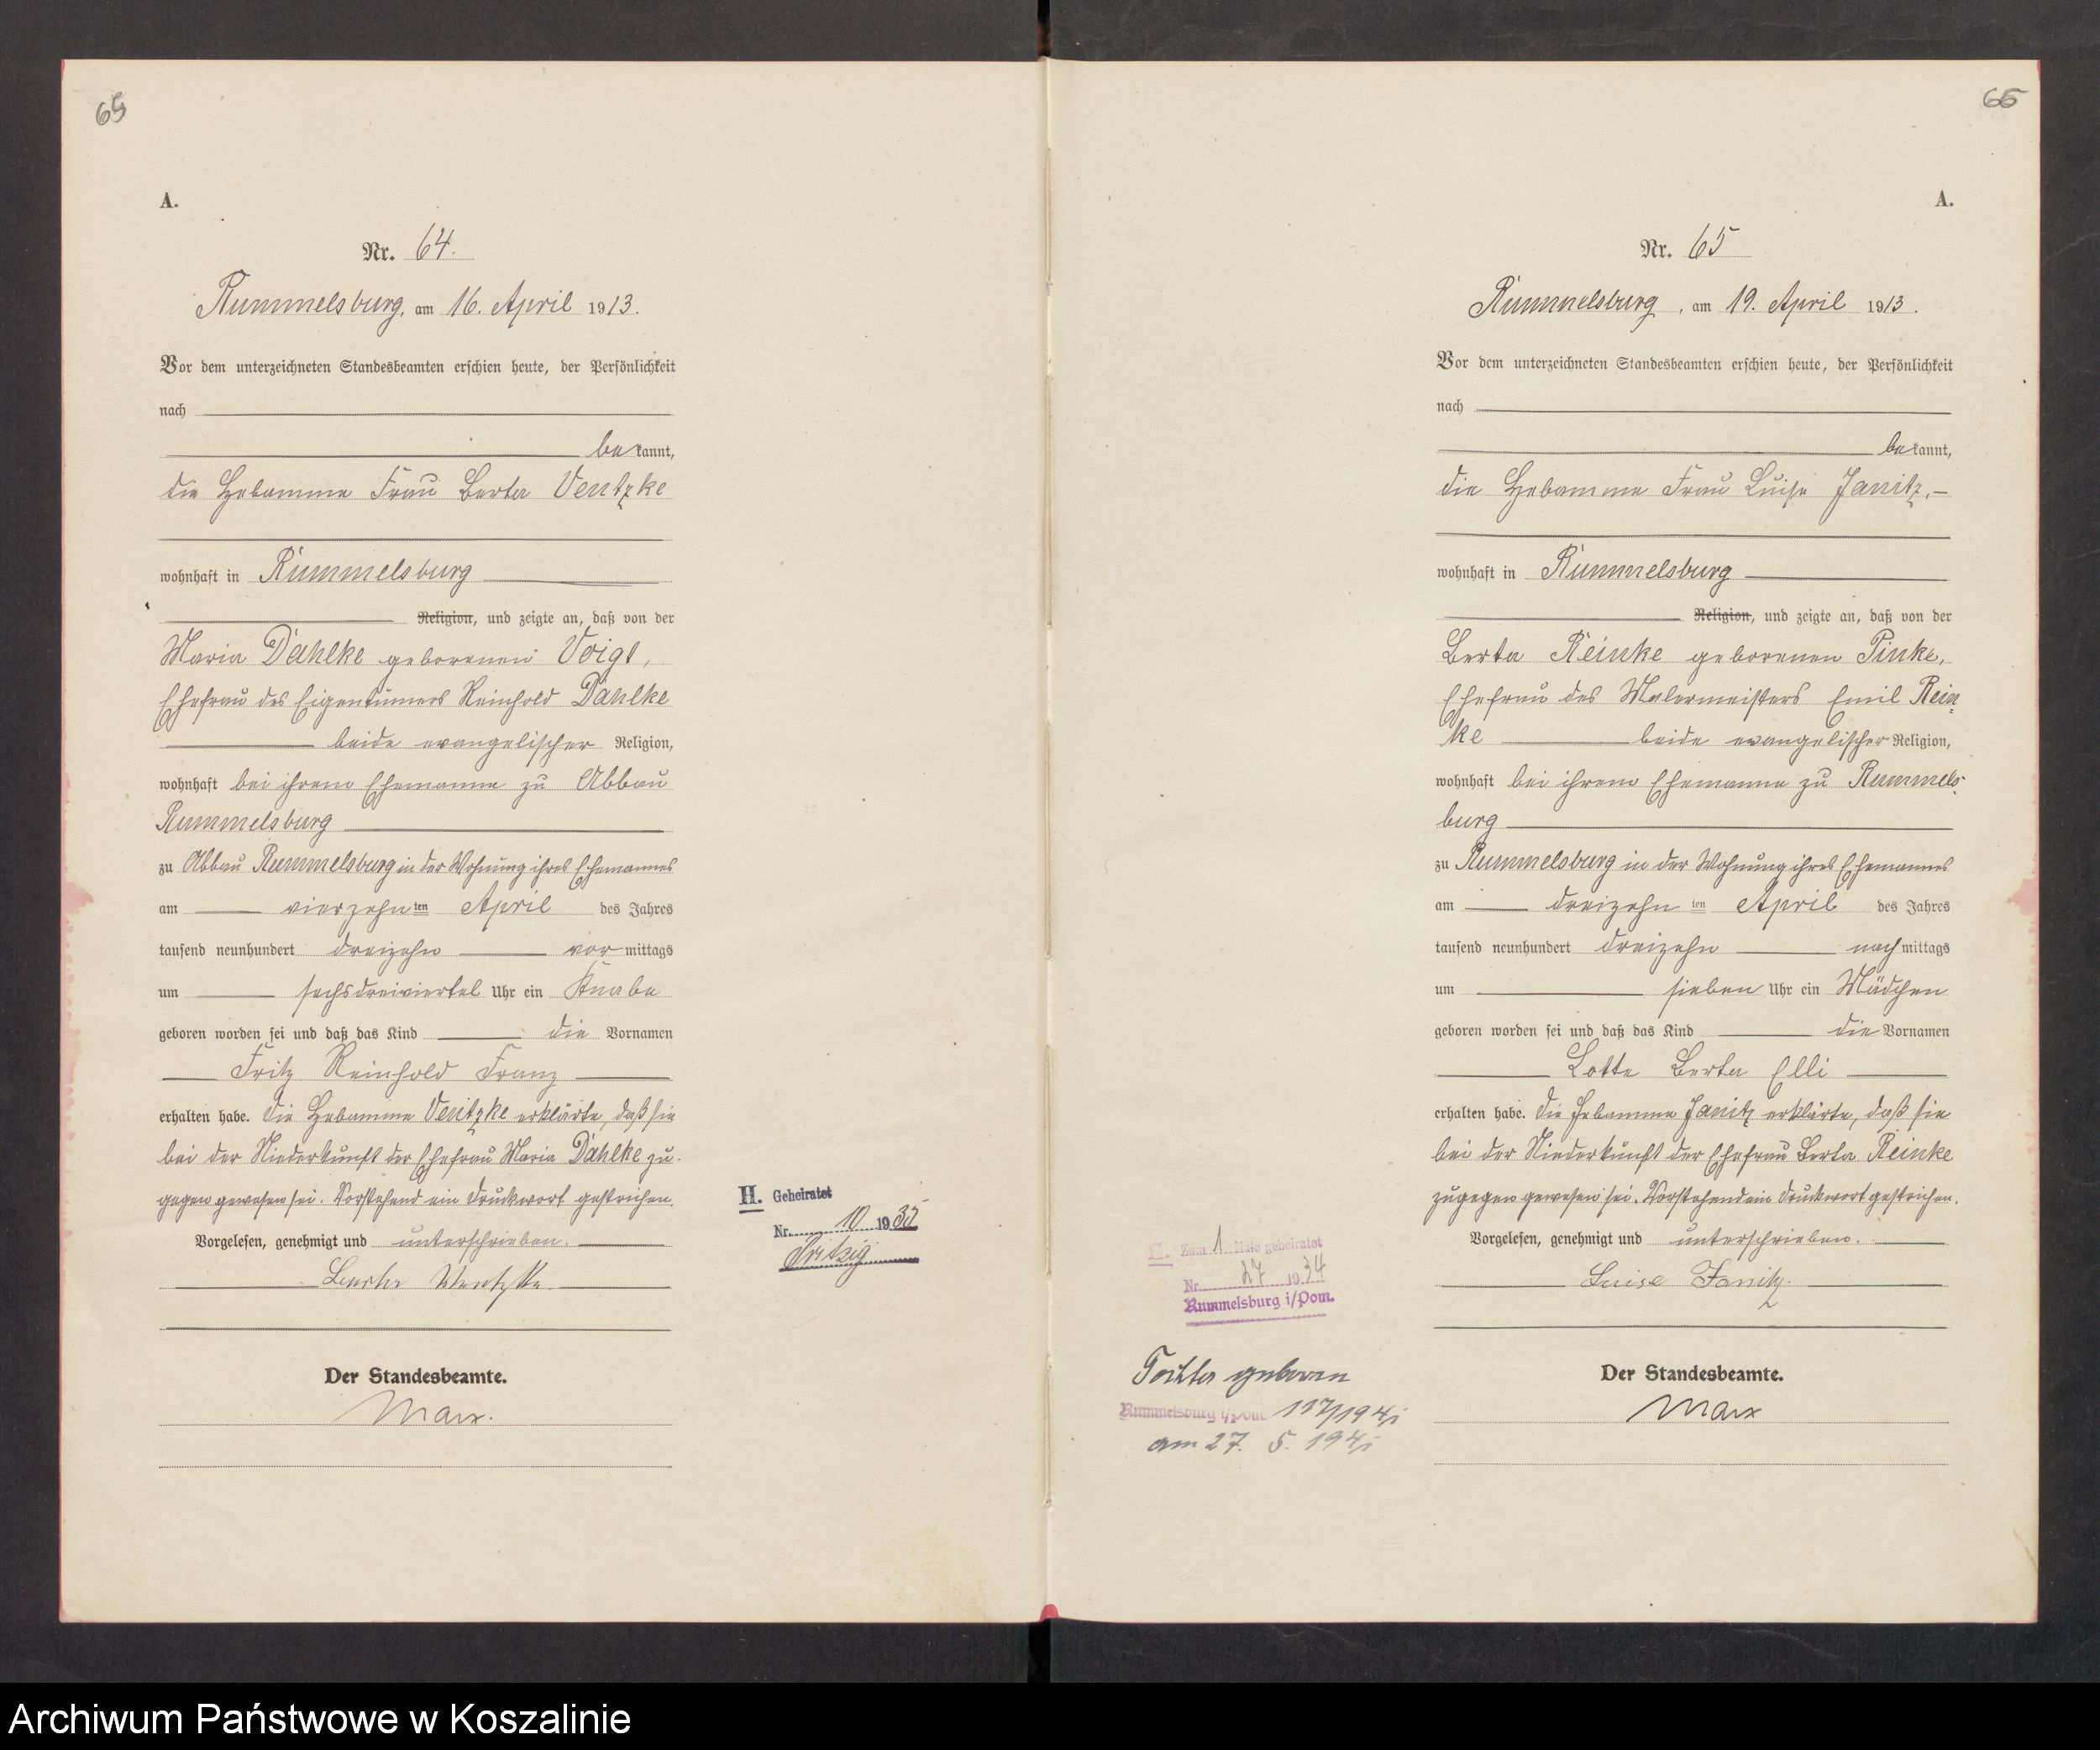 65
A.
Nr. 64.
Rummelsburg, am 16. April 1913.
Vor dem unterzeichneten Standesbeamten erschien heute, der Persönlichkeit
nach
bekannt,
die Hebamme Frau Berta Ventzke
wohnhaft in Rummelsburg
Religion, und zeigte an, daß von der
Maria Dahlke geborenen Voigt,
Ehefrau des Eigentümers Reinhold Dahlke
beide evangelischer Religion,
wohnhaft bei ihrem Ehemanne zu Abbau
Rummelsburg
zu Abbau Rummelsburg in der Wohnung ihres Ehemannes
am vierzehnten April des Jahres
tausend neunhundert dreizehn vormittags
um sechsdreiviertel Uhr ein Knabe
geboren worden sei und daß das Kind die Vornamen
Fritz Reinhold Franz
erhalten habe. Die Hebamme Ventzke erklärte, daß sie
bei der Niederkunft der Ehefrau Maria Dahlke zu-
gegen gewesen sei. Vorstehend ein Druckwort gestrichen.
Vorgelesen, genehmigt und unterschrieben.
Berta Ventzke
Der Standesbeamte.
Marx.
II. Geheiratet
Nr. 10 1935
Pritzig
66
A.
Nr. 65
Rummelsburg, am 19. April 1913.
Vor dem unterzeichneten Standesbeamten erschien heute, der Persönlichkeit
nach
bekannt,
die Hebamme Frau Luise Janitz,
wohnhaft in Rummelsburg
Religion, und zeigte an, daß von der
Berta Reinke geborenen Pinke,
Ehefrau des Malermeisters Emil Rein=
ke beide evangelischer Religion,
wohnhaft bei ihrem Ehemanne zu Rummels-
burg
zu Rummelsburg in der Wohnung ihres Ehemannes
am dreizehnten April des Jahres
tausend neunhundert dreizehn nachmittags
um sieben Uhr ein Mädchen
geboren worden sei und daß das Kind die Vornamen
Lotte Berta Elli
erhalten habe. Die Hebamme Janitz erklärte, daß sie
bei der Niederkunft der Ehefrau Berta Reinke
zugegen gewesen sei. Vorstehend ein Druckwort gestrichen.
Vorgelesen, genehmigt und unterschrieben.
Luise Janitz.
Der Standesbeamte.
Marx
II. Zum 1. Male geheiratet
Nr. 27 1934
Rummelsburg i/Pom.
Tochter geboren
Rummelsburg i/Pom.
am 27. 5.
Archiwum Państwowe w Koszalinie